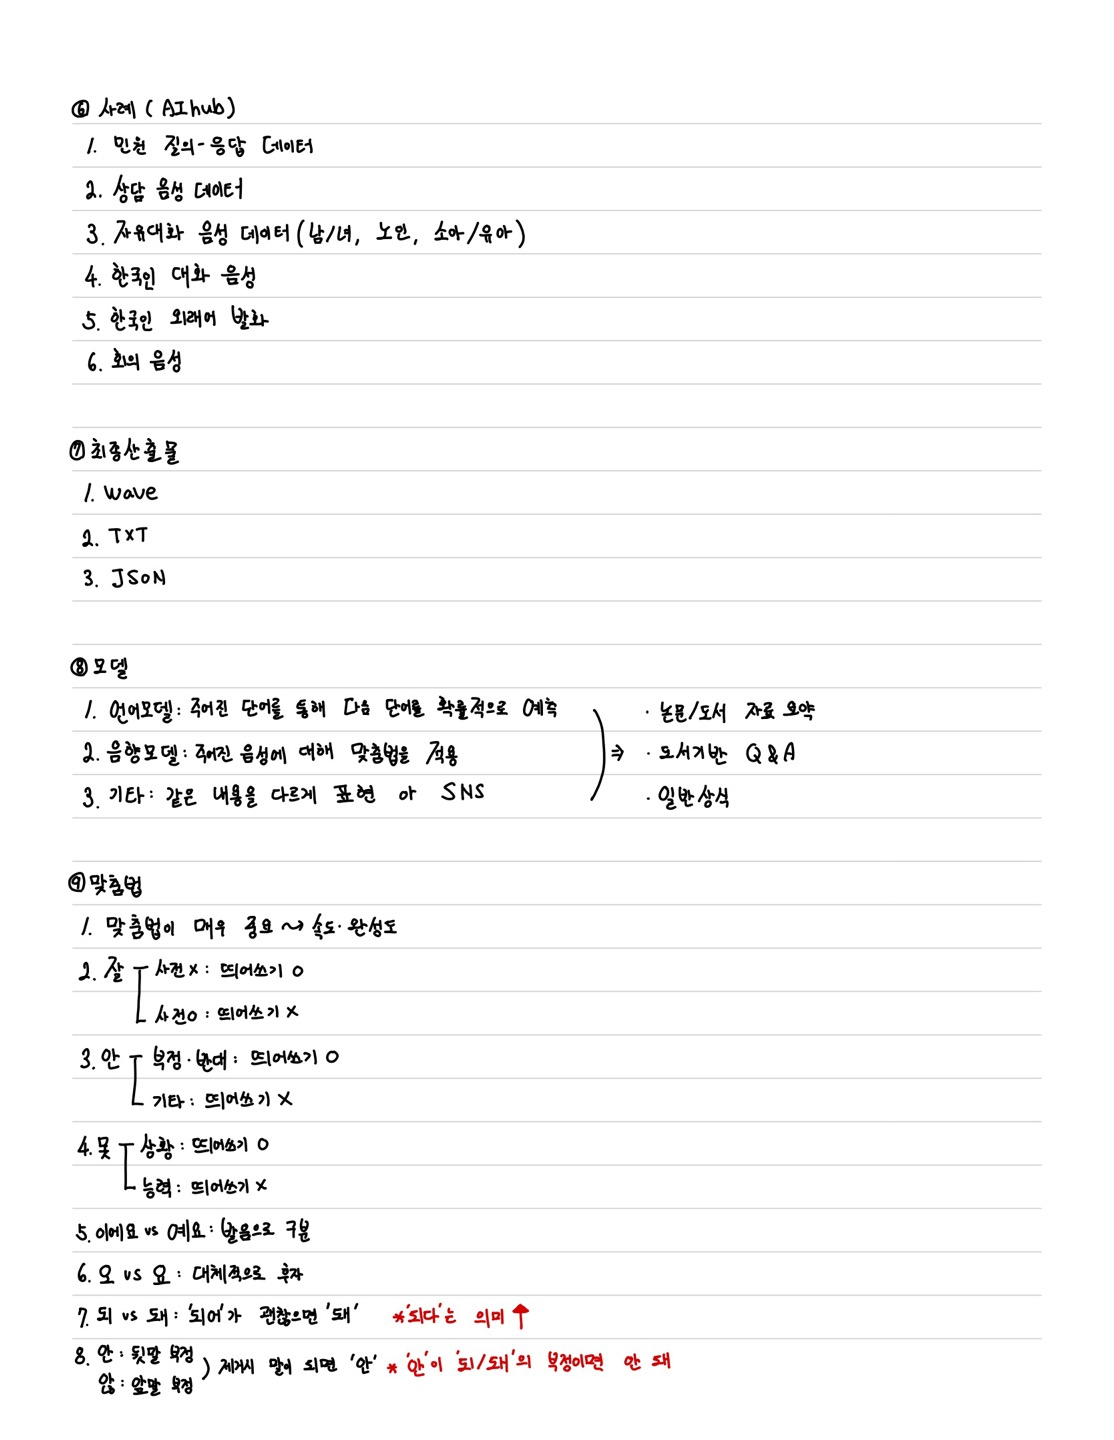 ⑥ 사례 (AI hub)
1. 민원 질의-응답 데이터
2. 상담 음성 데이터
3. 자유대화 음성 데이터 (남/녀, 노인, 소아/유아)
4. 한국인 대화 음성
5. 한국인 외래어 발화
6. 회의 음성
⑦ 최종산출물
1. wave
2. TXT
3. JSON
⑧ 모델
1. 언어모델: 주어진 단어를 통해 다음 단어를 확률적으로 예측
2. 음향모델: 주어진 음성에 대해 맞춤법을 적용
3. 기타: 같은 내용을 다르게 표현 아 SNS
⇒ · 논문/도서 자료 요약
· 도서기반 Q&A
· 일반상식
⑨ 맞춤법
1. 맞춤법이 매우 중요 ~> 속도·완성도
2. 잘 사전 X: 띄어쓰기 O
사전 O: 띄어쓰기 X
3. 안 부정·반대: 띄어쓰기 O
기타: 띄어쓰기 X
4. 못 상황: 띄어쓰기 O
능력: 띄어쓰기 X
5. 이에요 vs 예요: 발음으로 구분
6. 오 vs 요: 대체적으로 후자
7. 되 vs 돼: '되어'가 괜찮으면 '돼' *'되다'는 의미 ↑
8. 안: 뒷말 부정
않: 앞말 부정
) 제거시 말이 되면 '안' * '안'이 '되/돼'의 부정이면 안 돼